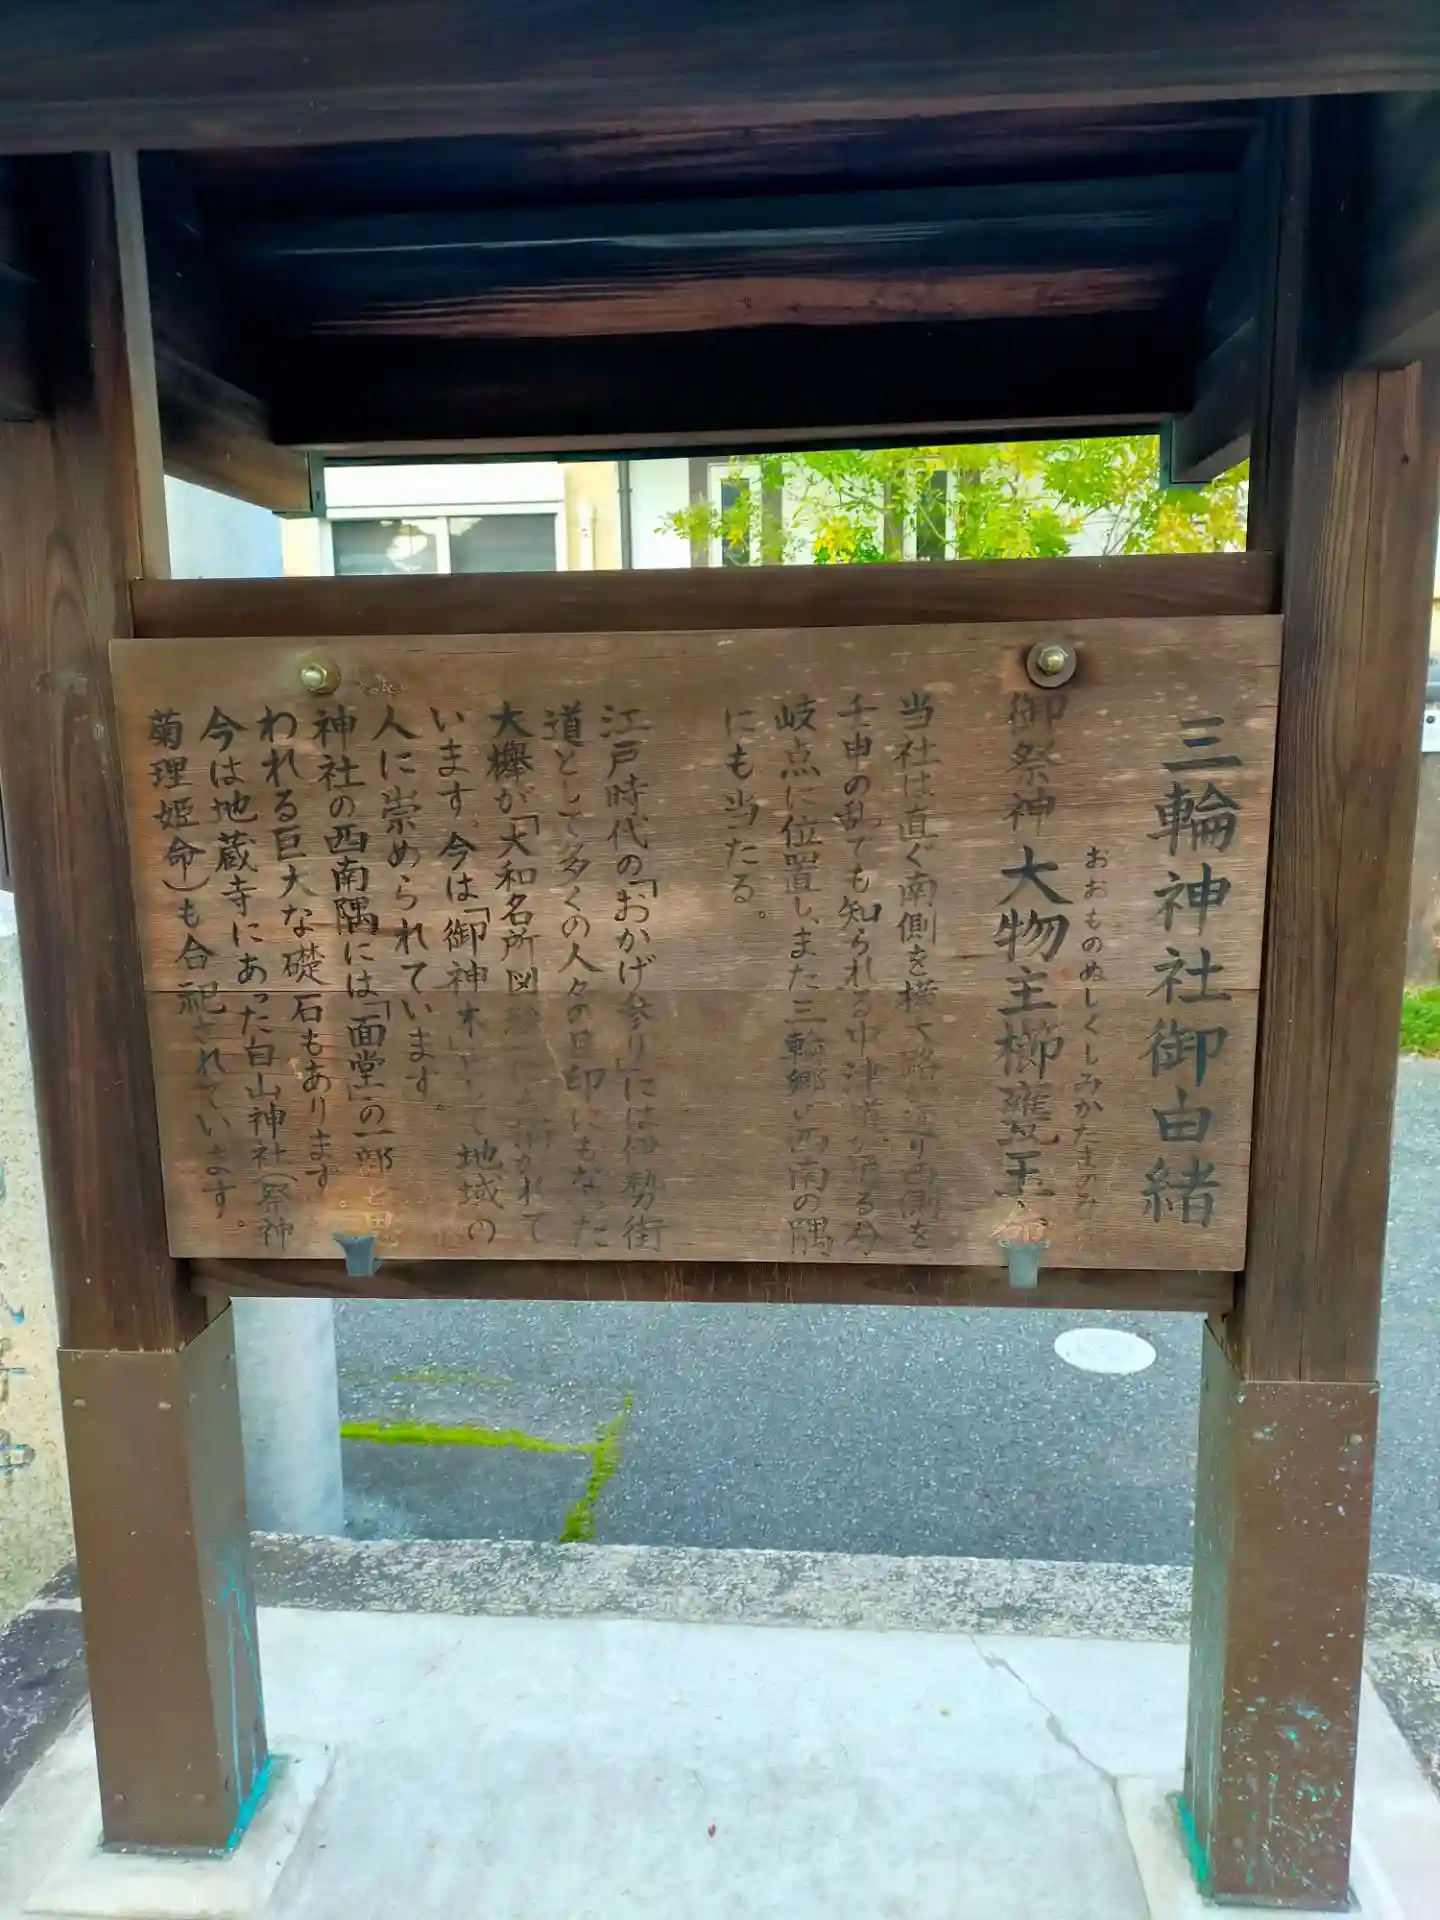 三輪神社御由緒
おおものぬしくしみかたまのみ
御祭神 大物主櫛甕玉命
当社は直ぐ南側を横大路が通り西側を
壬申の乱でも知られる中津道が通る分
岐点に位置し、また三輪郷の西南の隅
にも当たる。
江戸時代の「おかげ参り」には伊勢街
道として多くの人々の目印にもなった
大欅が「大和名所図絵」にも描かれて
います。今は「御神木」として地域の
人に崇められています。
神社の西南隅には「面堂」の一部と思
われる巨大な礎石もあります。
今は地蔵寺にあった白山神社（祭神
菊理姫命）も合祀されています。